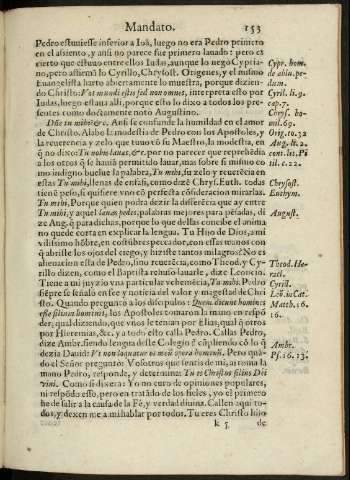 Mandato. 153
Pedro estuuiesse inferior a Iuā, luego no era Pedro primero
en el assiento, y ansi no parece fue primero lauado: pero es
cierto que estuuo entre ellos Iudas, aunque lo nego Cypria-
no, pero assiemō lo Cyrillo, Chrysost. Origenes, y el mismo
Euangelista harto abiertamente lo muestra, porque dizien-
do Christo: Vos mundi estis sed non omnes, interpreta esto por
Iudas, luego estaua alli, porque esto lo dixo a todos los pre-
sentes como doctamente notó Augustino.
Dize tu mihi? &c. Ansi se confunde la humildad en el amor
de Christo. Alabo la modestia de Pedro con los Apostoles, y
la reuerencia y zelo que tuuo cō su Maestro, la modestia, en
q̄ no dixo: Tu nobis lauas, &c. por no parecer que reprehēdia
a los otros q̄ se hauiā permitido lauar, mas sobre si mismo co
mo indigno buelue la palabra, Tu mihi, su zelo y reuerēcia en
estas Tu mihi, llenas de enfasi, como dizē Chrys. Euth. todas
tienē peso, si quisiere vno cō perfecta cōsideracion mirarlas.
Tu mihi. Porque quien podra dezir la differēcia que ay entre
Tu mihi, y aquel lauas pedes, palabras mejores para pēsadas, di
ze Aug. q̄ para dichas, porque lo que dellas concibe el anima
no quede corta en explicar la lengua. Tu Hijo de Dios, a mi
vilissimo hōbre, en costūbres peccador, con essas manos con
q̄ abriste los ojos del ciego, y hiziste tantos milagros? No es
alienacion esta de Pedro, sino reuerēcia, como Theod. y Cy-
rillo dizen, como el Baptista rehuso lauarle, dize Leoncio.
Tiene a mi juyzio vna particular vehemēcia, Tu mihi. Pedro
siēpre se señalo en fee y noticia del valor y magestad de Chri
sto. Quando preguntó a los discipulos: Quem dicunt homines
esse filium hominis, los Apostoles tomaron la mano en respō
der, qual diziendo, que vnos le tenian por Elias, qual q̄ otros
por Hieremias, &c. y a todo esto calla Pedro. Callas Pedro,
dize Ambr. siendo lengua deste Colegio? cūpliendo cō lo q̄
dezia Dauid: Vt non loquatur os meum opera hominum. Pero quā-
do el Señor preguntó: Vosotros que sentis de mi, ar toma la
mano Pedro, responde, y determina: Tu es Christus filius Dei
viui. Como si dixera: Yo no curo de opiniones populares,
ni respōdo esso, pero en tratādo de los fieles, yo el primero
he de salir a la causa de la Fè, y verdad diuina. Callen aqui to-
dos, y dexen me a mi hablar por todos. Tu eres Christo hijo
k 5 de
Cypr. hom.
de ablu. pe-
dum.
Cyril. li. 9.
cap. 7.
Chrys. ho-
mil. 69.
Orig. to. 32
Aug. li. 2.
cont. lit. Pi
til. c. 22.
Chrysost.
Euthym.
August.
Theod. He-
racl.
Cyril.
Leō. in Cat.
Matth. 16.
16.
Ambr.
Ps. 16. 13.